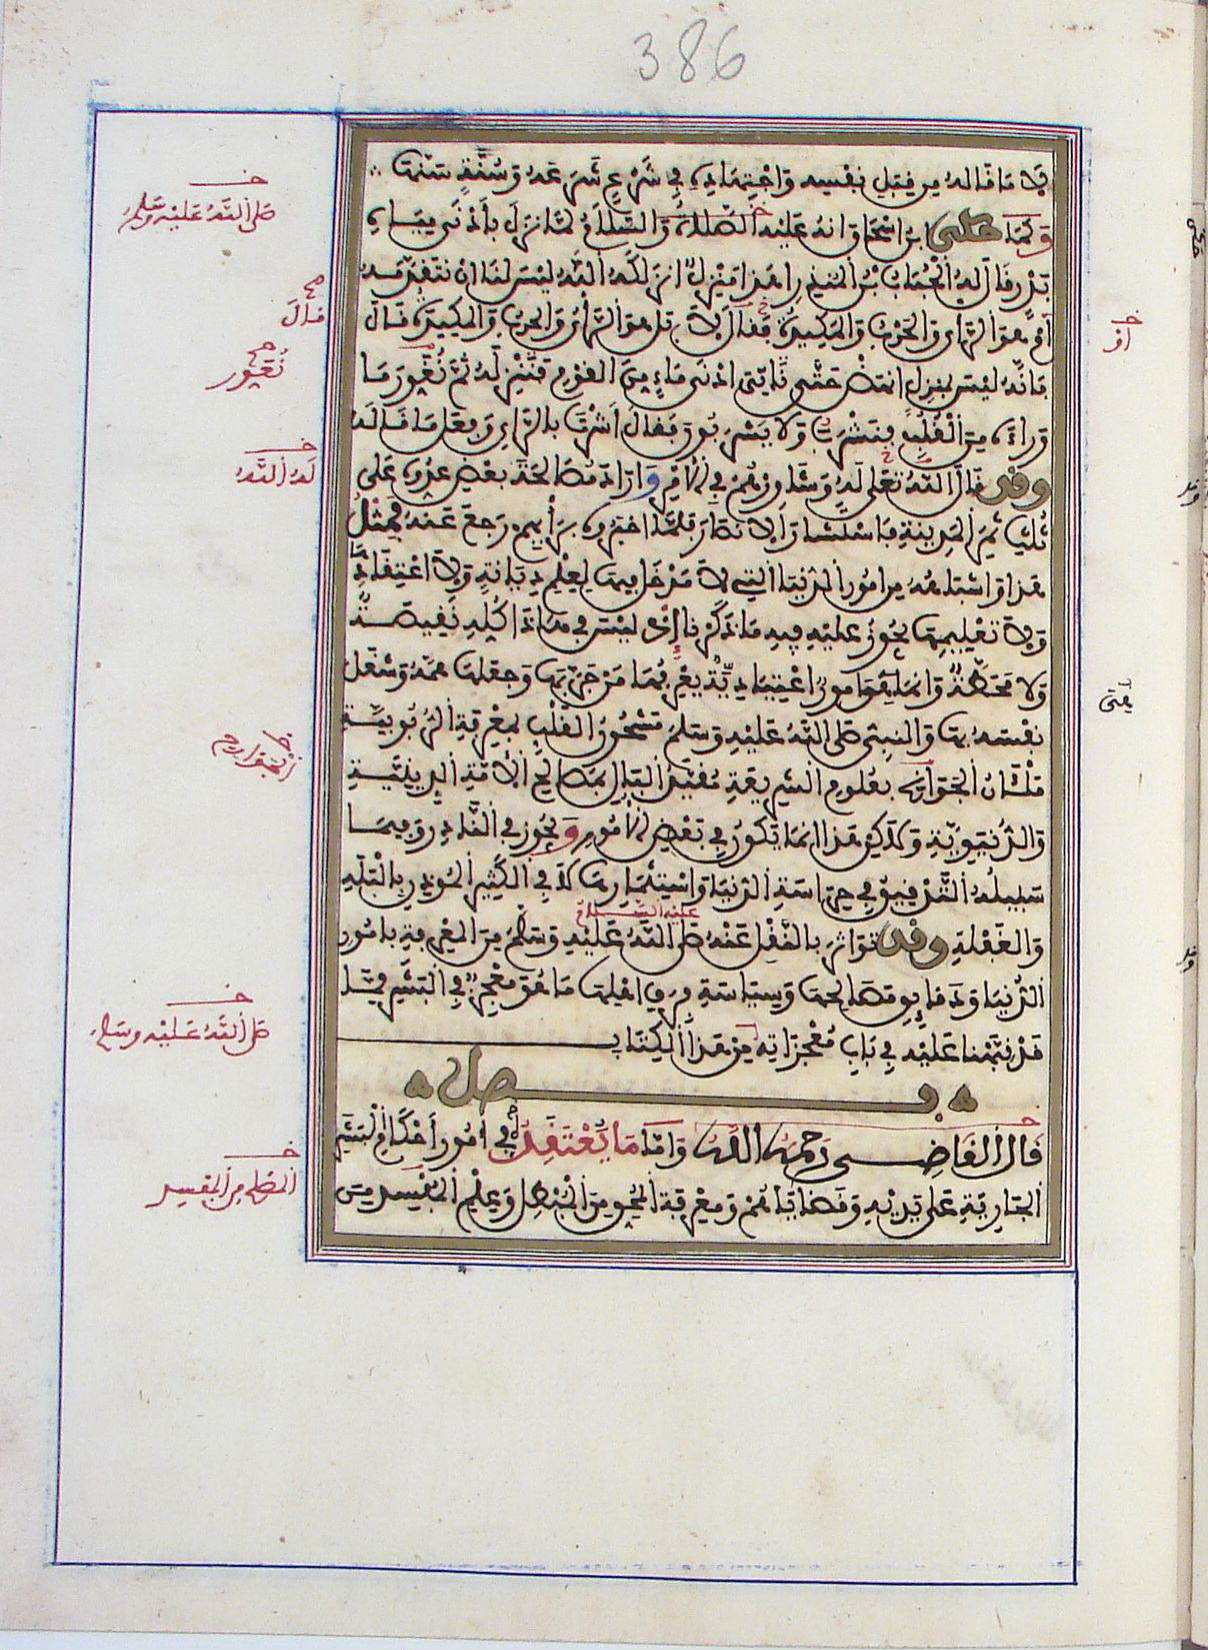 386
لا ما قاله من قبل نفسه واجتهاده في شرع شرعه وسنة سنها
وكما حكى ابن اسحاق انه عليه الصلاة والسلام لما نزل بأدنى مياه
بدر قال له الحباب بن المنذر اهذا منزل انزلكه الله ليس لنا ان نتقدمه
ام هو الرأي والحرب والمكيدة فقال لا بل هو الرأي والحرب والمكيدة قال
فانه ليس بمنزل انهض حتى ناتي ادنى ماء من القوم فننزله ثم نغور ما
وراءه من القلب فنشرب ولا يشربون فقال اشرت بالرأي وفعل ما قاله
وقد قال الله تعلى له وشاورهم في الامر واراد مصالحة بعض عدوه على
ثلث ثمر المدينة فاستشار الانصار فلما اخبروه برأيهم رجع عنه فمثل
هذا واشباهه من امور الدنيا التي لا مدخل فيها لعلم ديانة ولا اعتقادها
ولا تعليمها يجوز عليه فيه ما ذكرناه إذ ليس في هذا كله نقيصة
ولا محطة وانما هو امور اعتيادية يعرفها من جربها وجعلها همه وشغل
نفسه بها والنبي صلى الله عليه وسلم مشحون القلب بمعرفة الربوبية
ملآن الجوانح بعلوم الشريعة مقيد البال بمصالح الامة الدينية
والدنيوية ولكن هذا انما يكون في بعض الامور ويجوز في النادر وفيما
سبيله التدقيق في حراسة الدنيا واستثمارها لا في الكثير الموذن بالبله
والغفلة وقد تواتر بالنقل عنه صلى الله عليه وسلم من المعرفة بامور
عليه السلام
الدنيا ودقايق مصالحها وسياسة فرق اهلها ما هو معجز في البشر مما
قد نبهنا عليه في باب معجزاته من هذا الكتاب
فصل
قال القاضي رحمه الله واما ما يعتقده في امور احكام البشر
الجارية على يديه وقضاياهم ومعرفة المحق من المبطل وعلم المفسد من
خـ
صلى الله عليه وسلم
صح
قال
صح
نغور
خـ
له الله
خـ
صلى الله عليه وسلم
خـ
المصلح من المفسد
خـ
او